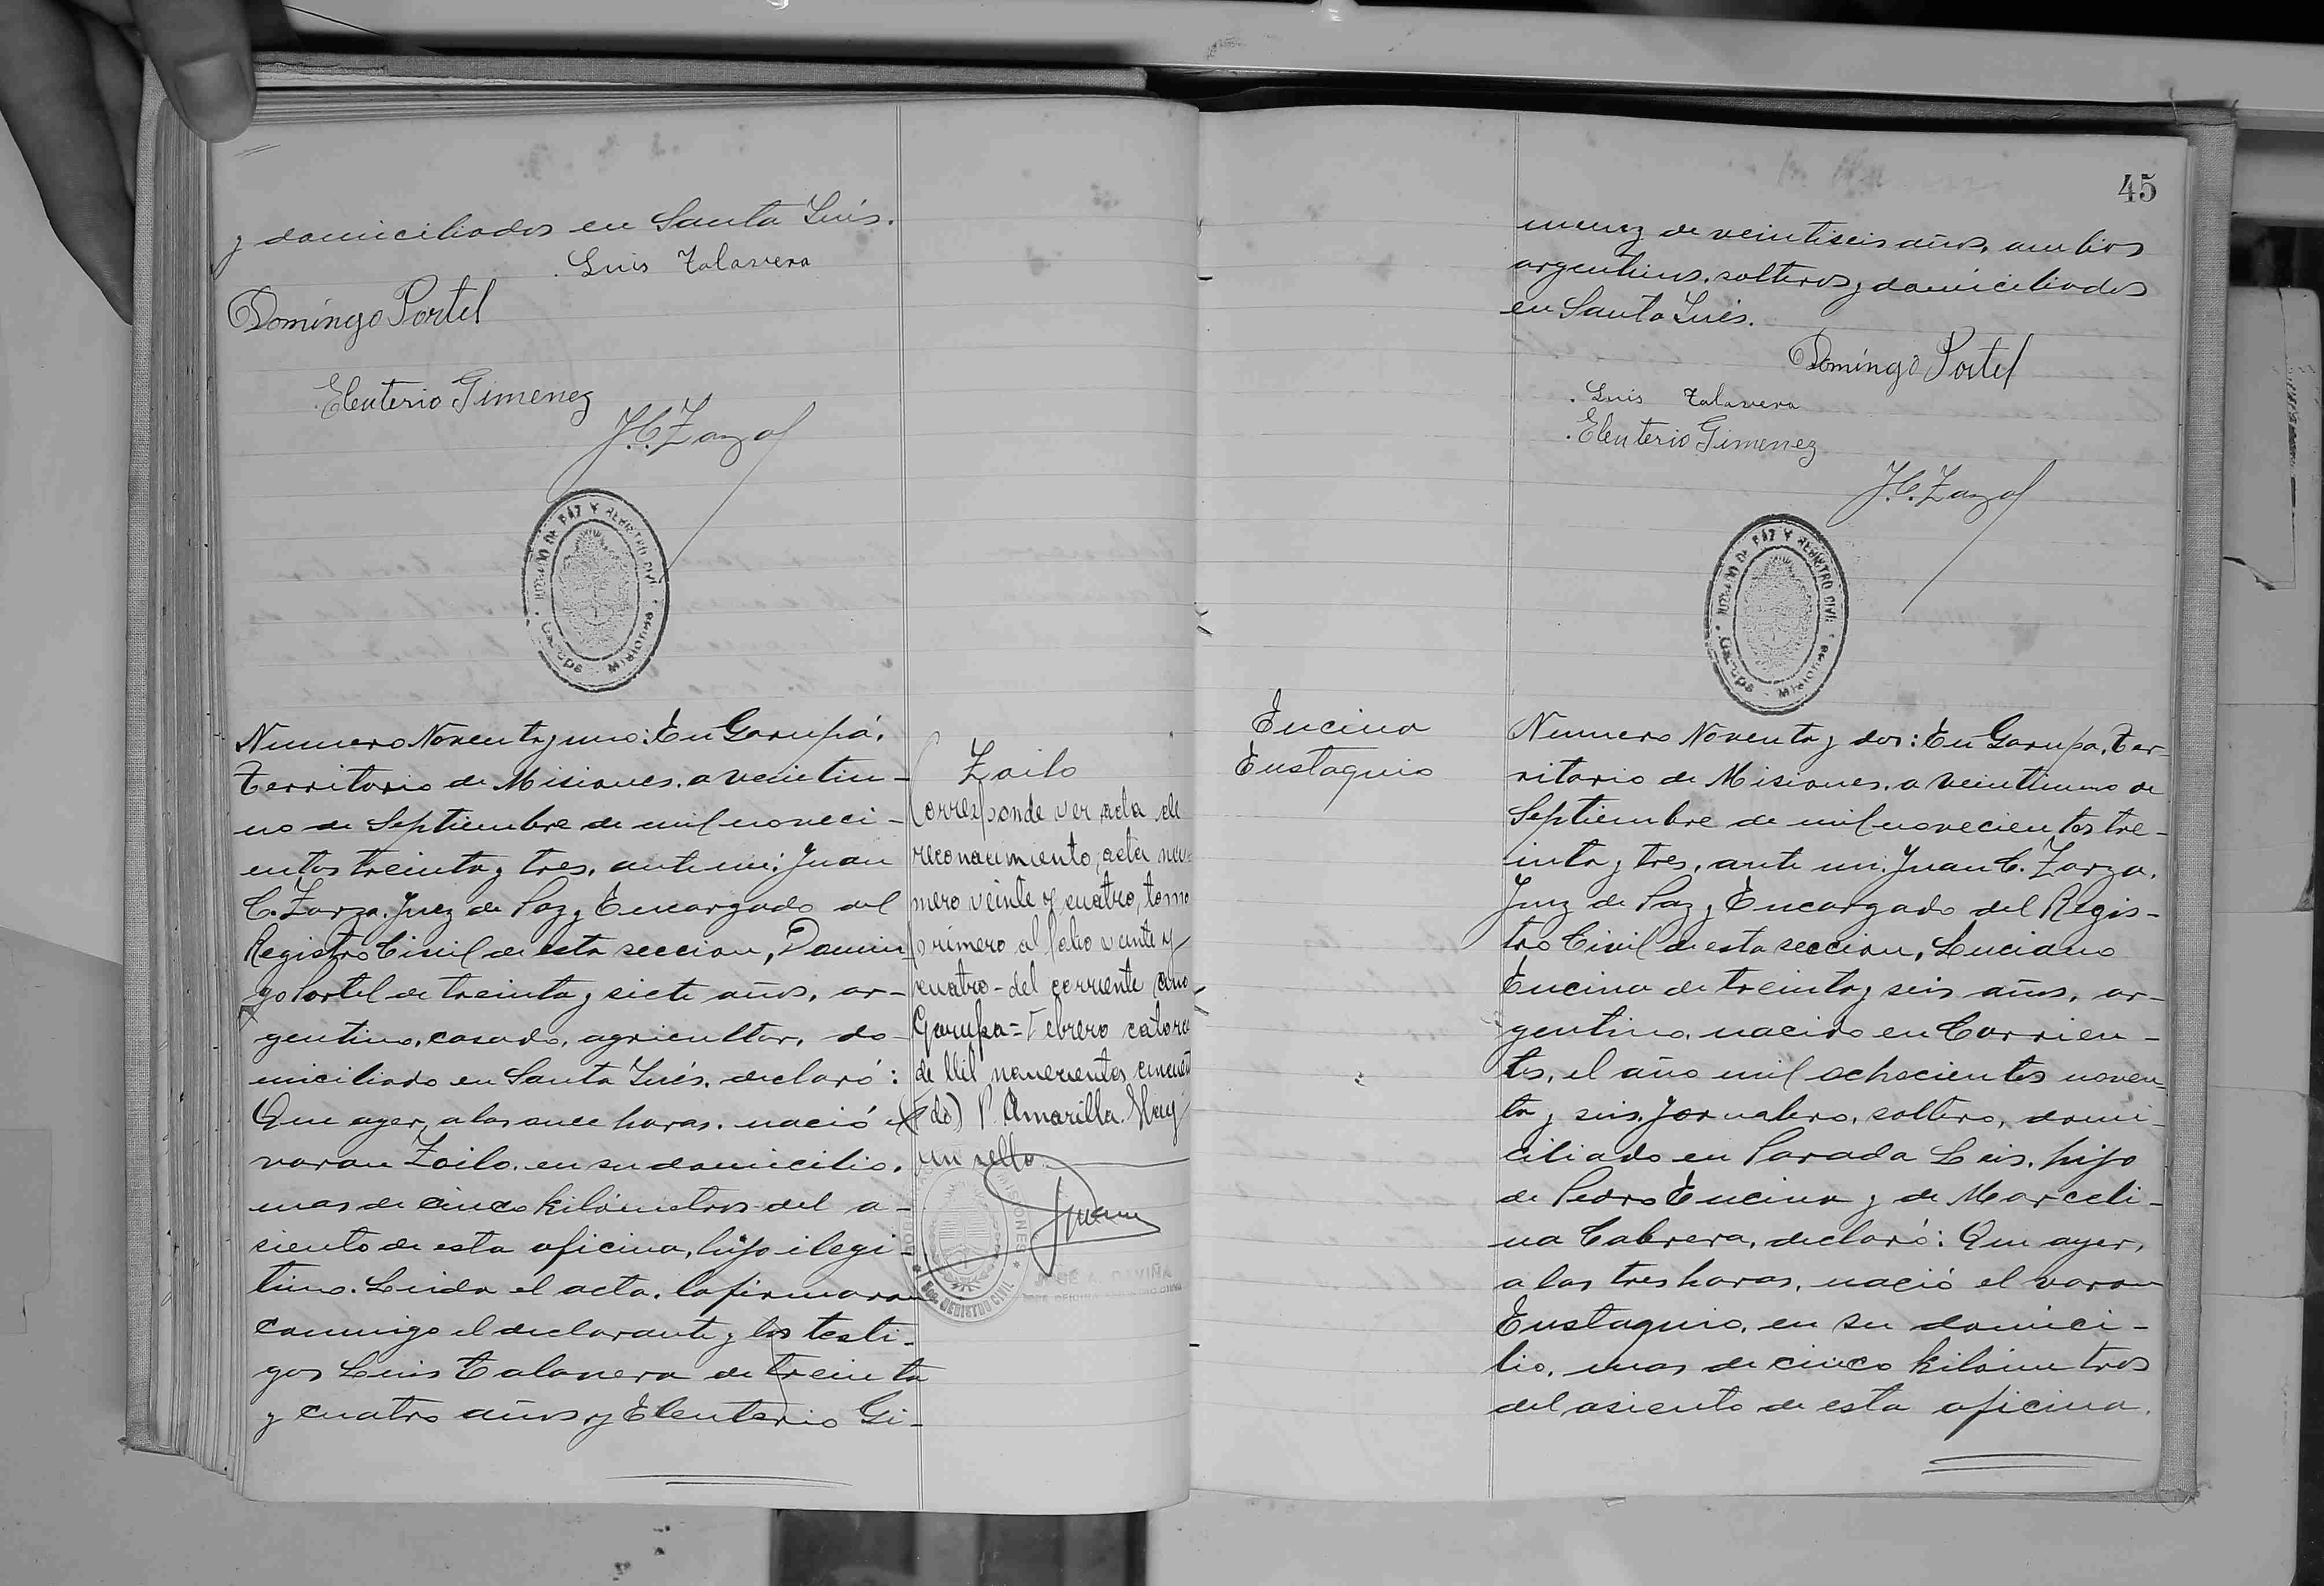 y domiciliados en Santa Inés.
Luis Talavera
Domingo Portel
Eleuterio Gimenez
J.C. Zarza
JUZGADO DE PAZ Y REGISTRO CIVIL
Garupá - Misiones
Numero Noventa y uno: En Garupá,
Territorio de Misiones, a veintiu-
no de Septiembre de mil noveci-
entos treinta y tres, ante mi: Juan
C. Zarza, Juez de Paz y Encargado del
Registro Civil de esta seccion, Domin
go Portel de treinta y siete años, ar-
gentino, casado, agricultor, do-
miciliado en Santa Inés, declaró:
Que ayer, a las once horas, nació el
varon Zoilo, en su domicilio,
mas de cinco kilómetros del a-
siento de esta oficina, hijo ilegi-
timo. Leida el acta, la firmaron
conmigo el declarante y los testi-
gos Luis Talavera de treinta
y cuatro años y Eleuterio Gi-
Zoilo
Corresponde ver acta de
reconocimiento, acta nu-
mero veinte y cuatro, tomo
primero al folio veinte y
cuatro - del corriente año
Garupa = Febrero catorce
de Mil novecientos cincuenta
(fdo) P. Amarilla. Hay
un sello
MISIONES
REGISTRO CIVIL
45
menez de veintiseis años, ambos
argentinos, solteros y domiciliados
en Santa Inés.
Domingo Portel
Luis Talavera
Eleuterio Gimenez
J.C. Zarza
JUZGADO DE PAZ Y REGISTRO CIVIL
Garupá - Misiones
Encina
Eustaquio
Numero Noventa y dos: En Garupa, Ter-
ritorio de Misiones, a veintiuno de
Septiembre de mil novecientos tre-
inta y tres, ante mi: Juan C. Zarza,
Juez de Paz y Encargado del Regis-
tro Civil de esta seccion, Luciano
Encina de treinta y seis años, ar-
gentino, nacido en Corrien-
tes, el año mil ochocientos noven-
ta y seis, jornalero, soltero, domi-
ciliado en Parada Leis, hijo
de Pedro Encina y de Marceli-
na Cabrera, declaró: Que ayer,
a las tres horas, nació el varon
Eustaquio, en su domici-
lio, mas de cinco kilómetros
del asiento de esta oficina,